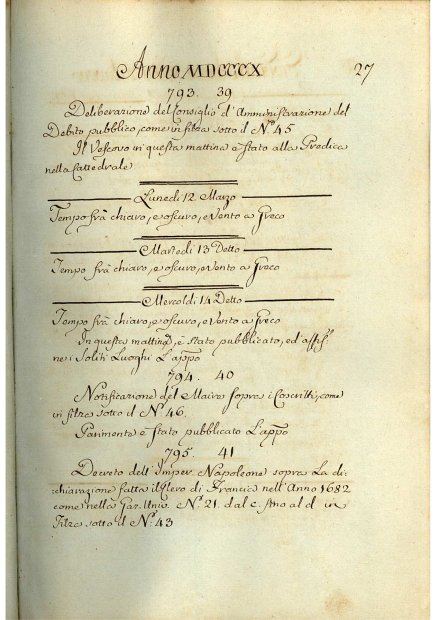 Anno MDCCCX 27
793. 39
Deliberazione del Consiglio d'Amministrazione del
Debito pubblico, come in filza sotto il N.º 45
Il Vescovo in questa mattina è stato alla Predica
nella Cattedrale
Lunedì 12 Marzo
Tempo frà chiaro, e oscuro, e Vento a Greco
Martedì 13 Detto
Tempo frà chiaro, e oscuro, e Vento a Greco
Mercoldì 14 Detto
Tempo frà chiaro, e oscuro, e Vento a Greco
In questa mattina, è stato pubblicato, ed affis
ne i Soliti Luoghi L'appº
794. 40
Notificazione del Maire sopra i Coscritti, come
in filza sotto il N.º 46.
Parimente è stato pubblicato L'appº
795. 41
Decreto dell'Imper. Napoleone sopra La di-
chiarazione fatta il Clero di Francia nell'Anno 1682
come nella Gaz. Univ. N.º 21. dal c. Ano al d in
Filza sotto il N.º 43